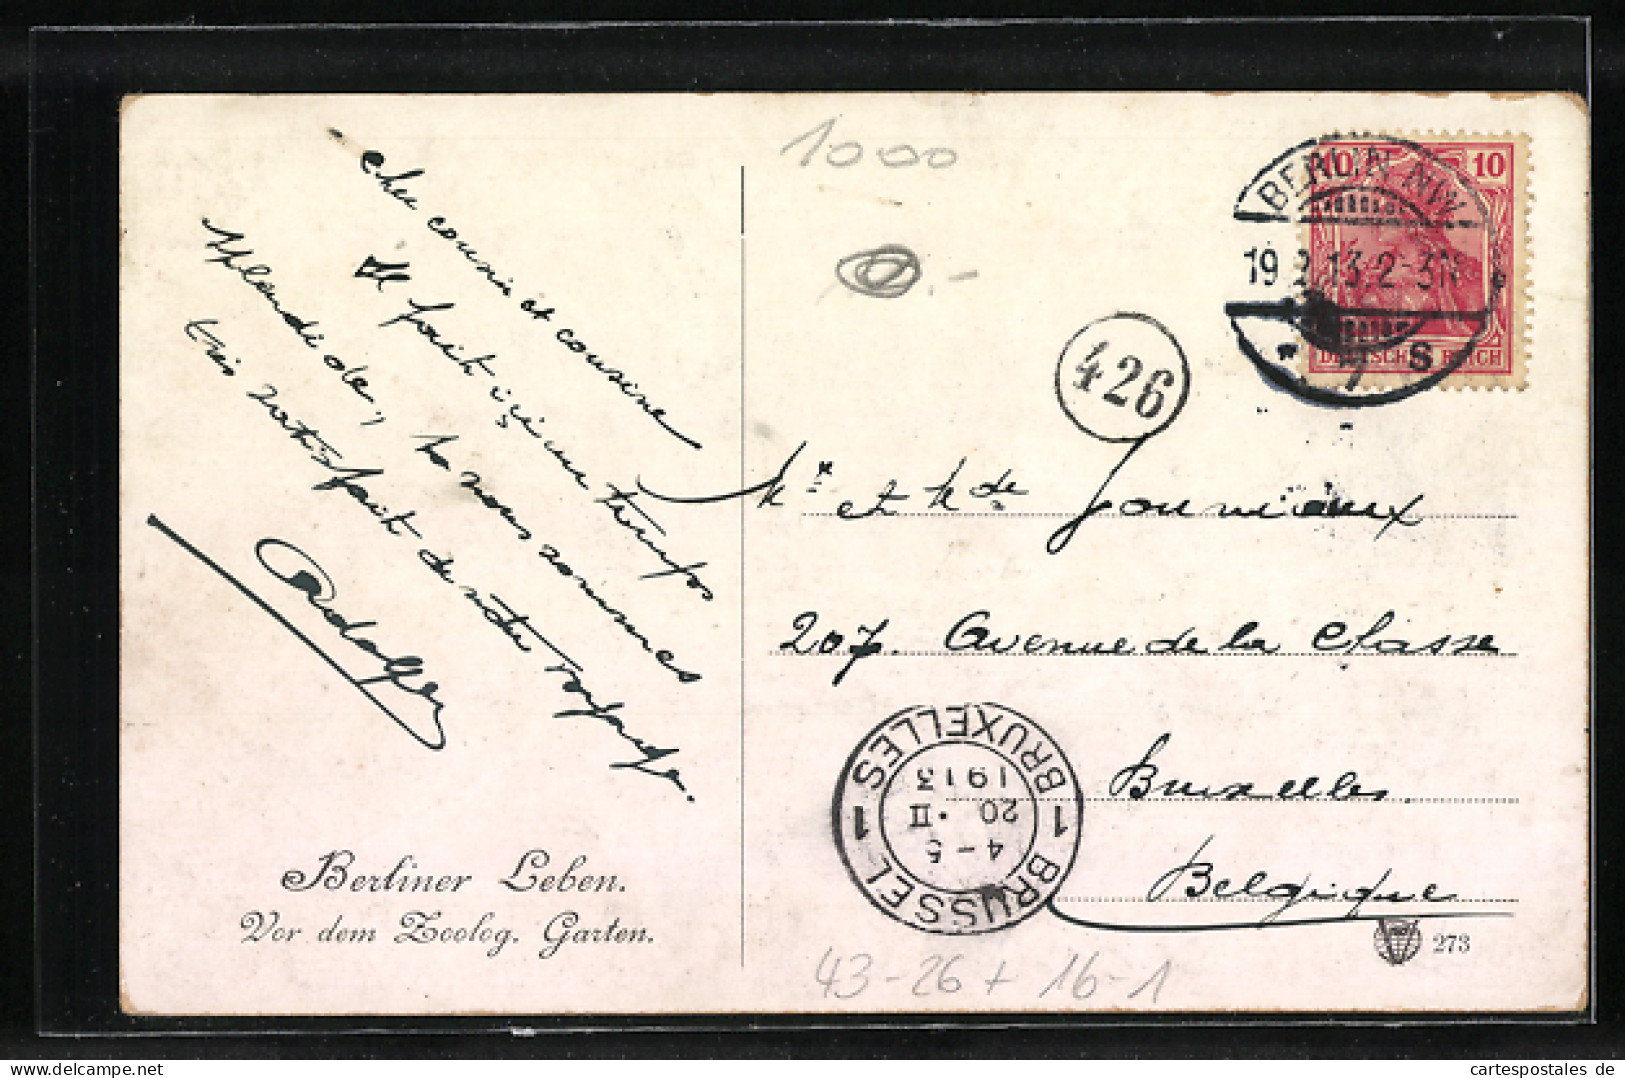 Cher cousin et cousine
Il fait ici un temps
splendide, & nous sommes
très satisfait de notre voyage.
Adolphe
Berliner Leben.
Vor dem Zoolog. Garten.
1000
426
BERLIN NW.
19.2.13.2-3N
* 7 S
10 10
DEUTSCHES REICH
Mr et Mde Gouvieaux
207. Avenue de la Chasse
Bruxelles
Belgique
BRUSSEL 1 BRUXELLES 1
4-5
20 · II
1913
273
43-26+16-1
cartespostales de